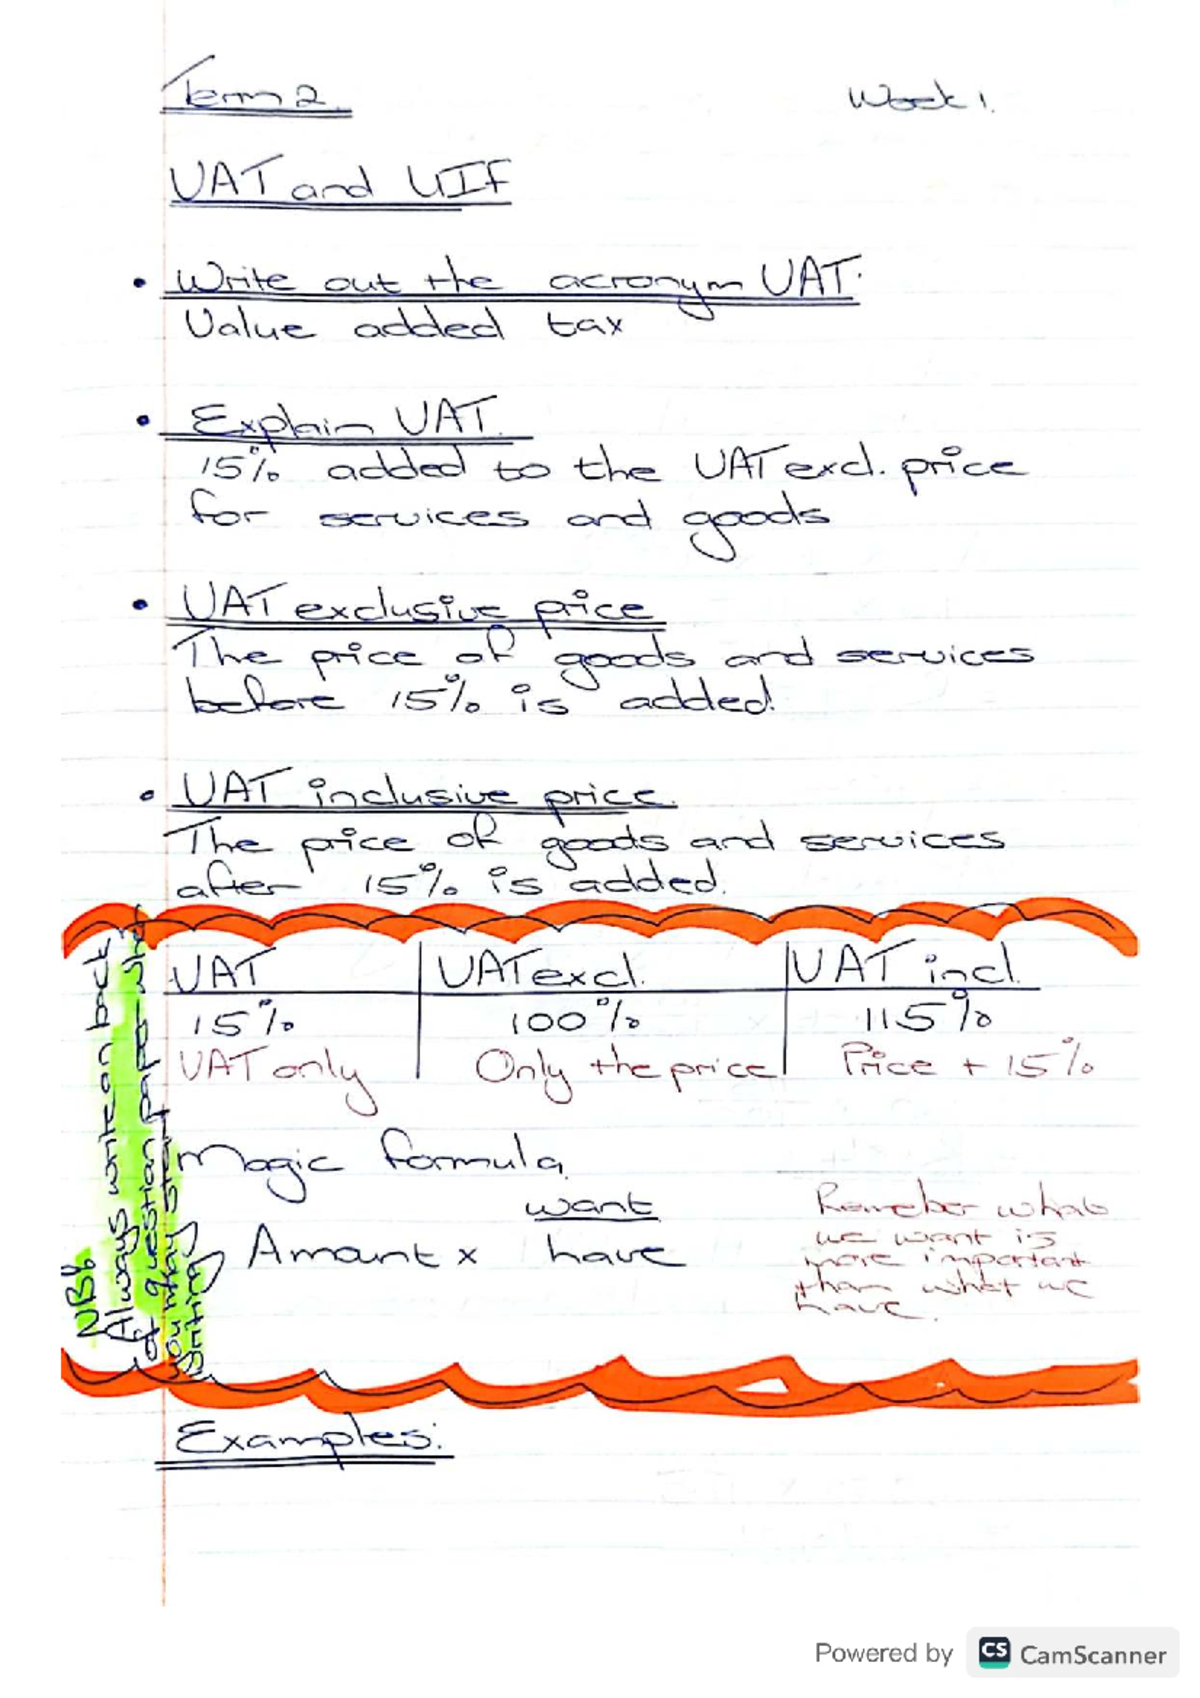 Term 2.
Week 1.
VAT and UIF
• Write out the acronym VAT.
Value added tax
• Explain VAT.
15% added to the VAT excl. price
for services and goods
• VAT exclusive price
The price of goods and services
before 15% is added.
• VAT inclusive price.
The price of goods and services
after 15% is added.
VAT | VAT excl. | VAT incl.
15% | 100% | 115%
VAT only | Only the price | Price + 15%
Magic formula.
want
Amount x have
Remeber what
we want is
more important
than what we
have.
NB!
Always write on back
of question paper when
you may start
writing
Examples:
Powered by CS CamScanner